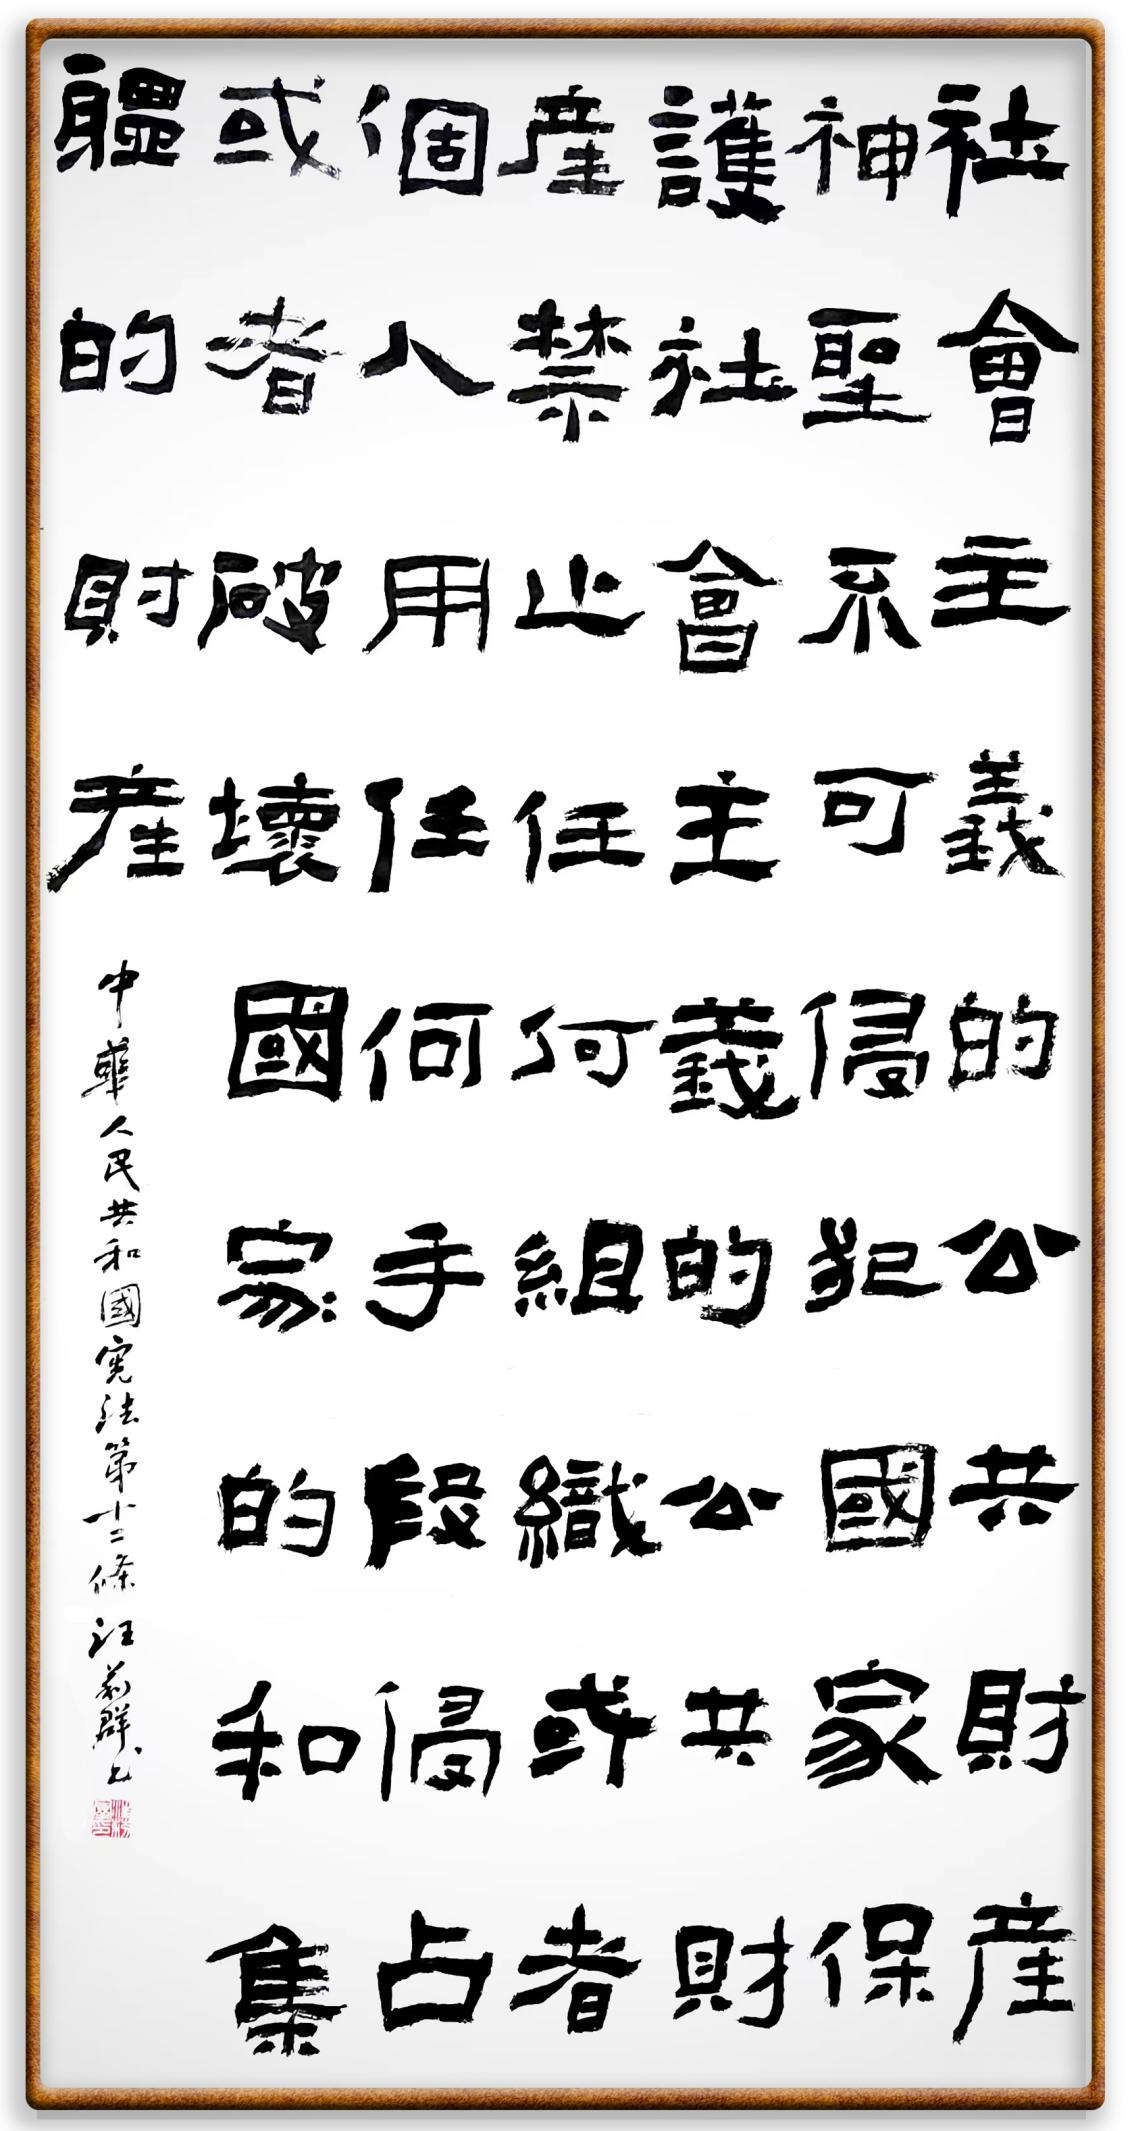 社會主義的公共財産
神聖不可侵犯國家保
護社會主義的公共財
産禁止任何組織或者
個人用任何手段侵占
或者破壞國家的和集
軆的財産
中華人民共和國憲法第十二條 汪莉群书